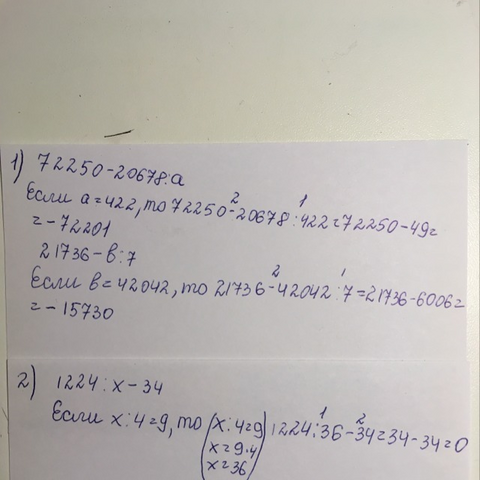 1) 72250-20678:a
Если a=422, то 72250-²20678:¹422=72250-49=
=-72201
21736-в:7
Если в=42042, то 21736-²42042:¹7=21736-6006=
=-15730
2) 1224:x-34
Если x:4=9, то (x:4=9) 1224:¹36-²34=34-34=0
x=9·4
x=36